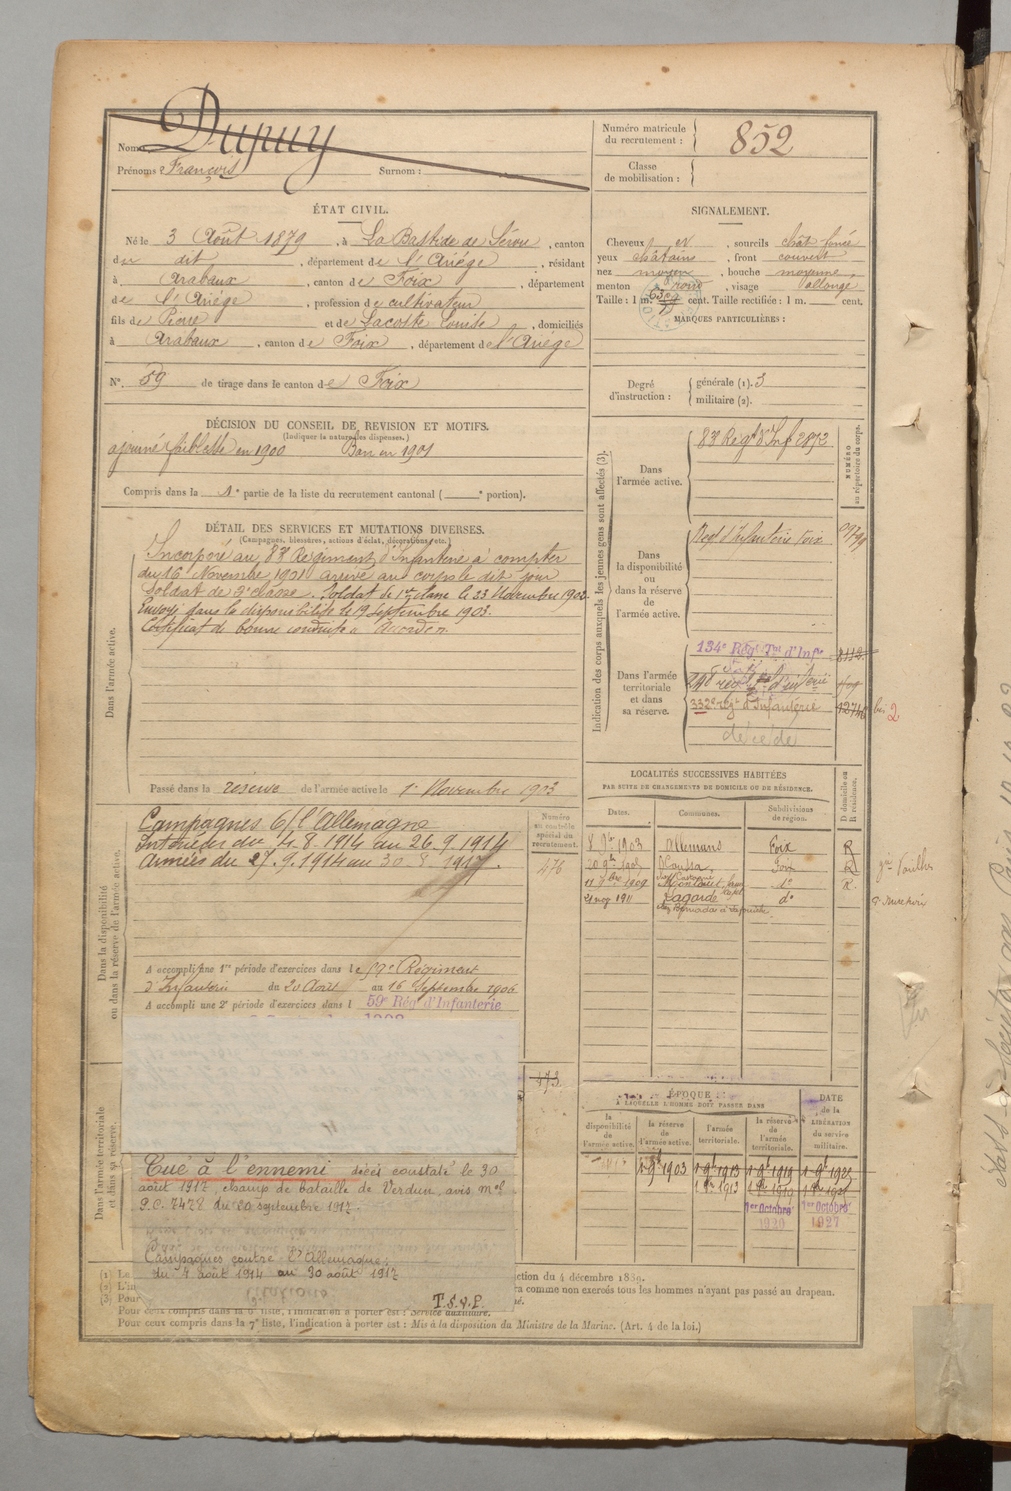 Nom : Dupuy
Prénoms : François Surnom :
Numéro matricule du recrutement : 852
Classe de mobilisation :
ÉTAT CIVIL.
Né le 3 Août 1879, à La Bastide de Sérou, canton
du dit, département de l'Ariège, résidant
à Arabaux, canton de Foix, département
de l'Ariège, profession de cultivateur
fils de Pierre et de Lacoste Louise, domiciliés
à Arabaux, canton de Foix, département de l'Ariège
N° 59 de tirage dans le canton de Foix
SIGNALEMENT.
Cheveux, sourcils chât foncé
yeux châtains, front couvert
nez moyen, bouche moyenne,
menton rond, visage allongé
Taille : 1 m. 63 cent. Taille rectifiée : 1 m. cent.
MARQUES PARTICULIÈRES :
Degré d'instruction : générale (1). 3
militaire (2).
DÉCISION DU CONSEIL DE REVISION ET MOTIFS.
(Indiquer la nature des dispenses.)
ajourné faiblesse en 1900 Bon en 1901
Compris dans la 1e partie de la liste du recrutement cantonal ( e portion).
DÉTAIL DES SERVICES ET MUTATIONS DIVERSES.
(Campagnes, blessures, actions d'éclat, décorations, etc.)
Dans l'armée active.
Incorporé au Régiment d'Infanterie à compter
du 16 Novembre 1901 arrivé au corps le dit jour
Soldat de 2e classe. Soldat de 1re classe le Novembre 1902
Envoyé dans la disponibilité le 19 Septembre 1903.
Certificat de bonne conduite Accordé
Passé dans la réserve de l'armée active le 1er Novembre 1903
Indication des corps auxquels les jeunes gens sont affectés (3).
NUMÉRO au répertoire du corps.
Dans l'armée active.
Régt d'Inf 2873
Dans la disponibilité ou dans la réserve de l'armée active.
Régt d'Infanterie Foix
Dans l'armée territoriale et dans sa réserve.
134e Régt Tal d'Infie
332e régt d'Infanterie
décédé
LOCALITÉS SUCCESSIVES HABITÉES
PAR SUITE DE CHANGEMENTS DE DOMICILE OU DE RÉSIDENCE.
Dates. Communes. Subdivisions de région. D domicile ou R résidence.
8 9bre 1903 Allemans Foix R
Foix R
1909 R.
1911 Lagarde do
Dans la disponibilité ou dans la réserve de l'armée active.
Numéro au contrôle spécial du recrutement.
476
Campagnes c/ l'Allemagne
Intérieur du 4.8.1914 au 26.9.1914
Armées du 27.9.1914 au 30 8 1917
A accompli une 1re période d'exercices dans le Régiment
d'Infanterie du 20 Août au 16 Septembre 1906
A accompli une 2e période d'exercices dans l 59e Rég d'Infanterie
Dans l'armée territoriale et dans sa réserve.
473
Tué à l'ennemi décès constaté le 30
août 1917, champ de bataille de Verdun, avis mel
P.C. 7478 du 20 septembre 1917.
Campagnes contre l'Allemagne:
du 4 août 1914 au 30 août 1917
T.S.V.P.
ÉPOQUE
À LAQUELLE L'HOMME DOIT PASSER DANS
la disponibilité de l'armée active.
la réserve de l'armée active.
l'armée territoriale.
la réserve de l'armée territoriale.
DATE de la LIBÉRATION du service militaire.
1 9b 1903 1 9b 1913 1 9b 1919
1913
1er Octobre 1920 1er Octobre 1927
ction du 4 décembre 1889.
ra comme non exercés tous les hommes n'ayant pas passé au drapeau.
Pour ceux compris dans la 6e liste, l'indication à porter est : Service auxiliaire.
Pour ceux compris dans la 7e liste, l'indication à porter est : Mis à la disposition du Ministre de la Marine. (Art. 4 de la loi.)